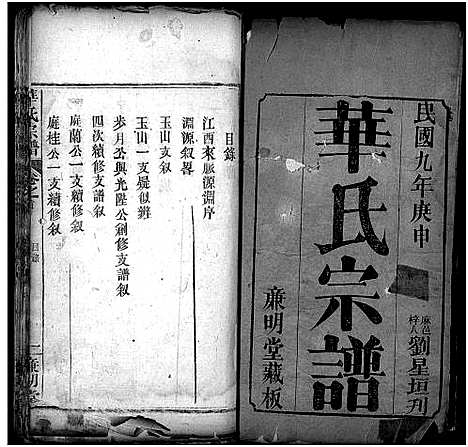 民國九年庚申
華氏宗譜
麻邑
梓人
劉星垣刋
廉明堂藏板
目錄
江西來脈源淵序
淵源叙畧
玉山支叙
玉山一支疑似辨
步月公與光陞公創修支譜叙
四次續修支譜叙
庭蘭公一支續修叙
庭桂公一支續修叙
華氏宗譜
目錄
一
廉明堂